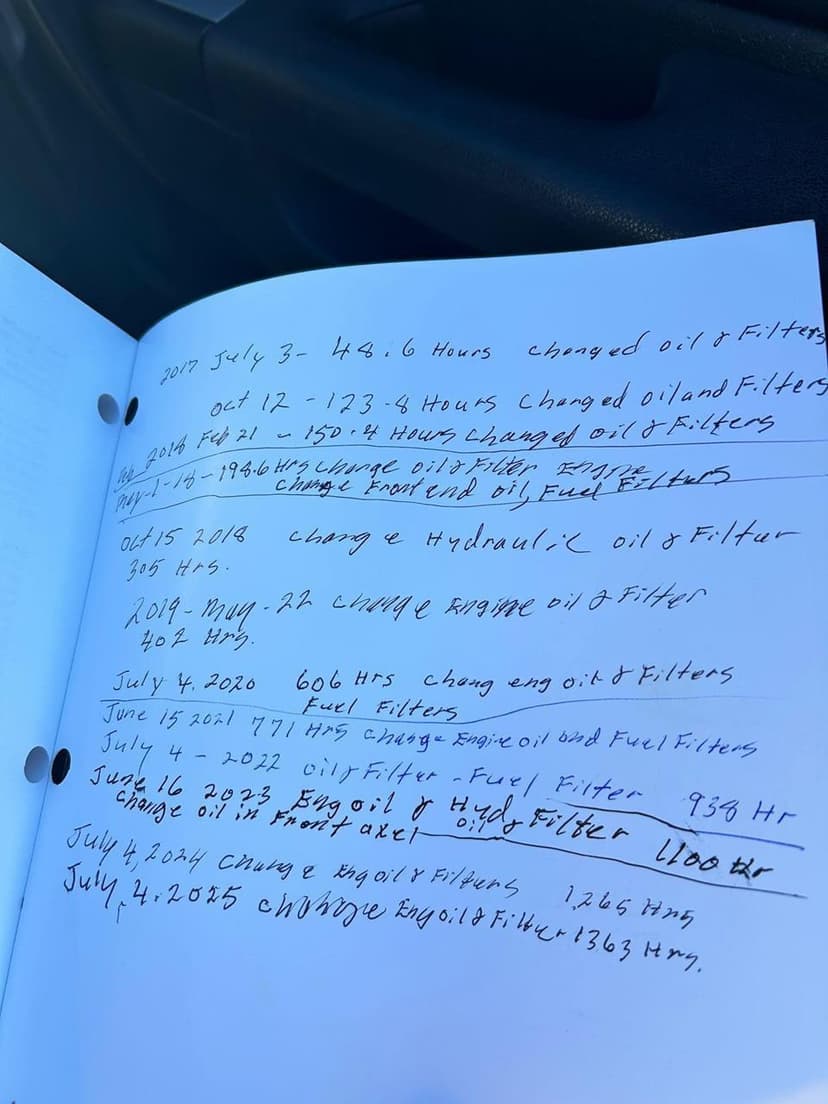 2017 July 3- 48.6 Hours changed oil & Filters
Oct 12 - 123.8 Hours Changed oil and Filters
2018 Feb 21 - 150.4 Hours changed oil & Filters
May-1-18-198.6 Hrs change oil & Filter Engine
change Front end oil, Fuel Filters
Oct 15 2018 change Hydraulic oil & Filter
305 Hrs.
2019-May-22 change Engine oil & Filter
402 Hrs.
July 4. 2020 606 Hrs chang eng oil & Filters
Fuel Filters
June 15 2021 771 Hrs change Engine oil and Fuel Filters
July 4 - 2022 oil & Filter - Fuel Filter 938 Hr
June 16 2023 Eng oil & Hyd Filter 1100 Hr
change oil in Front axel oil &
July 4, 2024 change Eng oil & Filters 1,265 Hrs
July. 4. 2025 change Eng oil & Filter 1363 Hrs.